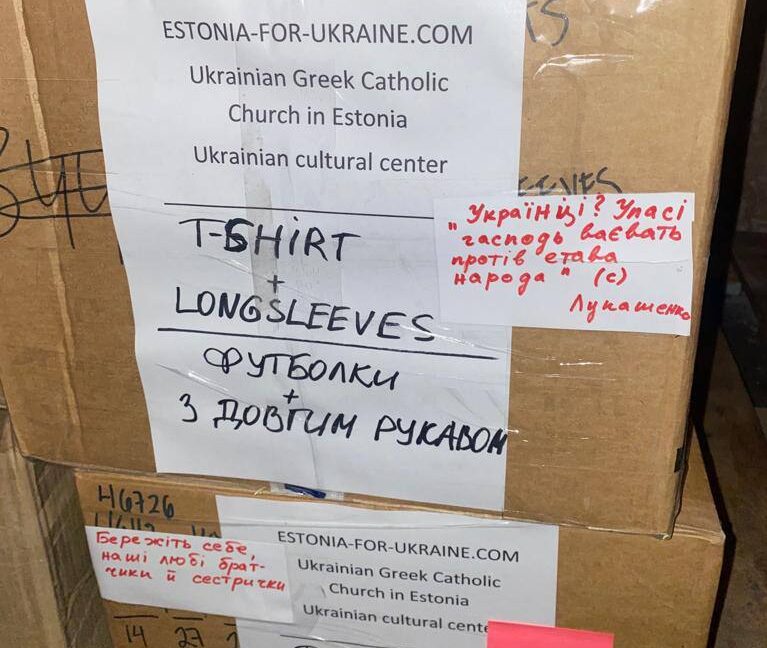 ESTONIA-FOR-UKRAINE.COM
Ukrainian Greek Catholic
Church in Estonia
Ukrainian cultural center
T-SHIRT
+
LONGSLEEVES
ФУТБОЛКИ
+
З ДОВГИМ РУКАВОМ
„Українці? Упасі
гасподь ваєвать
протів етава
народа" (с)
Лукашенко
H6726
Бережіть себе,
наші любі брат-
чики й сестрички
14 27
ESTONIA-FOR-UKRAINE.COM
Ukrainian Greek Catholic
Church in Estonia
Ukrainian cultural